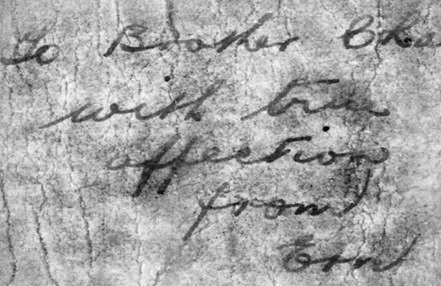 To Brother Cha
with true
affection
from
Ern